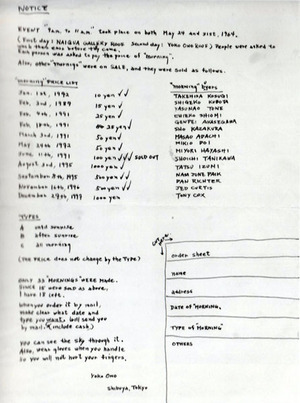 NOTICE
EVENT "9am. to 11am." took place on both May 24 and 31st, 1964.
(First day: NAIQUA GALLERY ROOF Second day: YOKO ONO ROOF) People were asked to
wash their ears before they came.
Each person was asked to pay the price of "morning".
Also, other "mornings" were on SALE, and they were sold as follows.
"morning" PRICE LIST
Jan. 1st, 1972 10 yen ✓✓
Feb. 3rd, 1987 15 yen ✓
Feb. 4th, 1991 25 yen ✓
Feb. 18th, 1991 35 yen ✓✓
March 3rd, 1991 50 yen ✓
May 24th, 1972 50 yen ✓
June 11th, 1991 100 yen ✓✓✓ SOLD OUT
August 2nd, 1995 1000 yen
September 8th, 1995 50 yen ✓✓
November 16th, 5 yen ✓✓
December 29th, 1999 1000 yen
"Morning" Buyers
TAKEHISA KOSUGI
SHIGEKO KUBOTA
YASUNAO TONE
CHIEKO SHIOMI
GENPEI AKASEGAWA
SHO KAZAKURA
MASAO ADACHI
MIKIO DOI
MIYORI HAYASHI
SHOICHI TANIKAWA
YATSU IZUMI
NAM JUNE PAIK
DAN RICHTER
JED CURTIS
TONY COX
TYPES
A until sunrise
B after sunrise
C all morning
(The PRICE does not change by the TYPE)
only 33 "MORNINGS" WERE MADE.
Since 15 were sold as above.
I have 18 left.
when you order it by mail,
make clear what date and
type you want. (will send you
by mail. include cash)
you can see the sky through it.
Also, wear gloves when you handle
so you will not hurt your fingers.
Yoko Ono
Shibuya, Tokyo
order sheet
name
address
DATE OF "MORNING,
TYPE OF "MORNING"
OTHERS